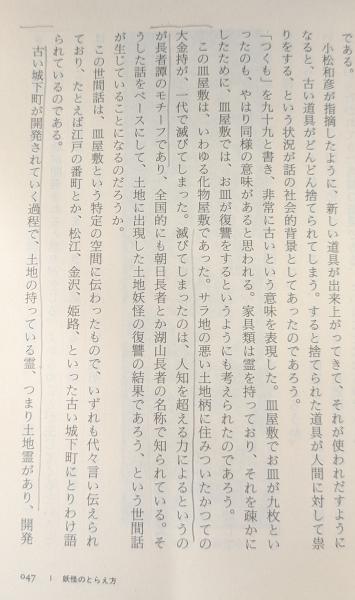 である。
小松和彦が指摘したように、新しい道具が出来上がってきて、それが使われだすように
なると、古い道具がどんどん捨てられてしまう。すると捨てられた道具が人間に対して祟
りをする、という状況が話の社会的背景としてあったのであろう。
「つくも」を九十九と書き、非常に古いという意味を表現した。皿屋敷でお皿が九枚とい
ったのも、やはり同様の意味があると思われる。家具類は霊を持っており、それを疎かに
したために、皿屋敷では、お皿が復讐をするというようにも考えられたのであろう。
この皿屋敷は、いわゆる化物屋敷であった。サラ地の悪い土地柄に住みついたかつての
大金持が、一代で滅びてしまった。滅びてしまったのは、人知を超える力によるというの
が長者譚のモチーフであり、全国的にも朝日長者とか湖山長者の名称で知られている。そ
うした話をベースにして、土地に出現した土地妖怪の復讐の結果であろう、という世間話
が生じていることになるのだろうか。
この世間話は、皿屋敷という特定の空間に伝わったもので、いずれも代々言い伝えられ
ており、たとえば江戸の番町とか、松江、金沢、姫路、といった古い城下町にとりわけ語
られているのである。
古い城下町が開発されていく過程で、土地の持っている霊、つまり土地霊があり、開発
047 | 妖怪のとらえ方